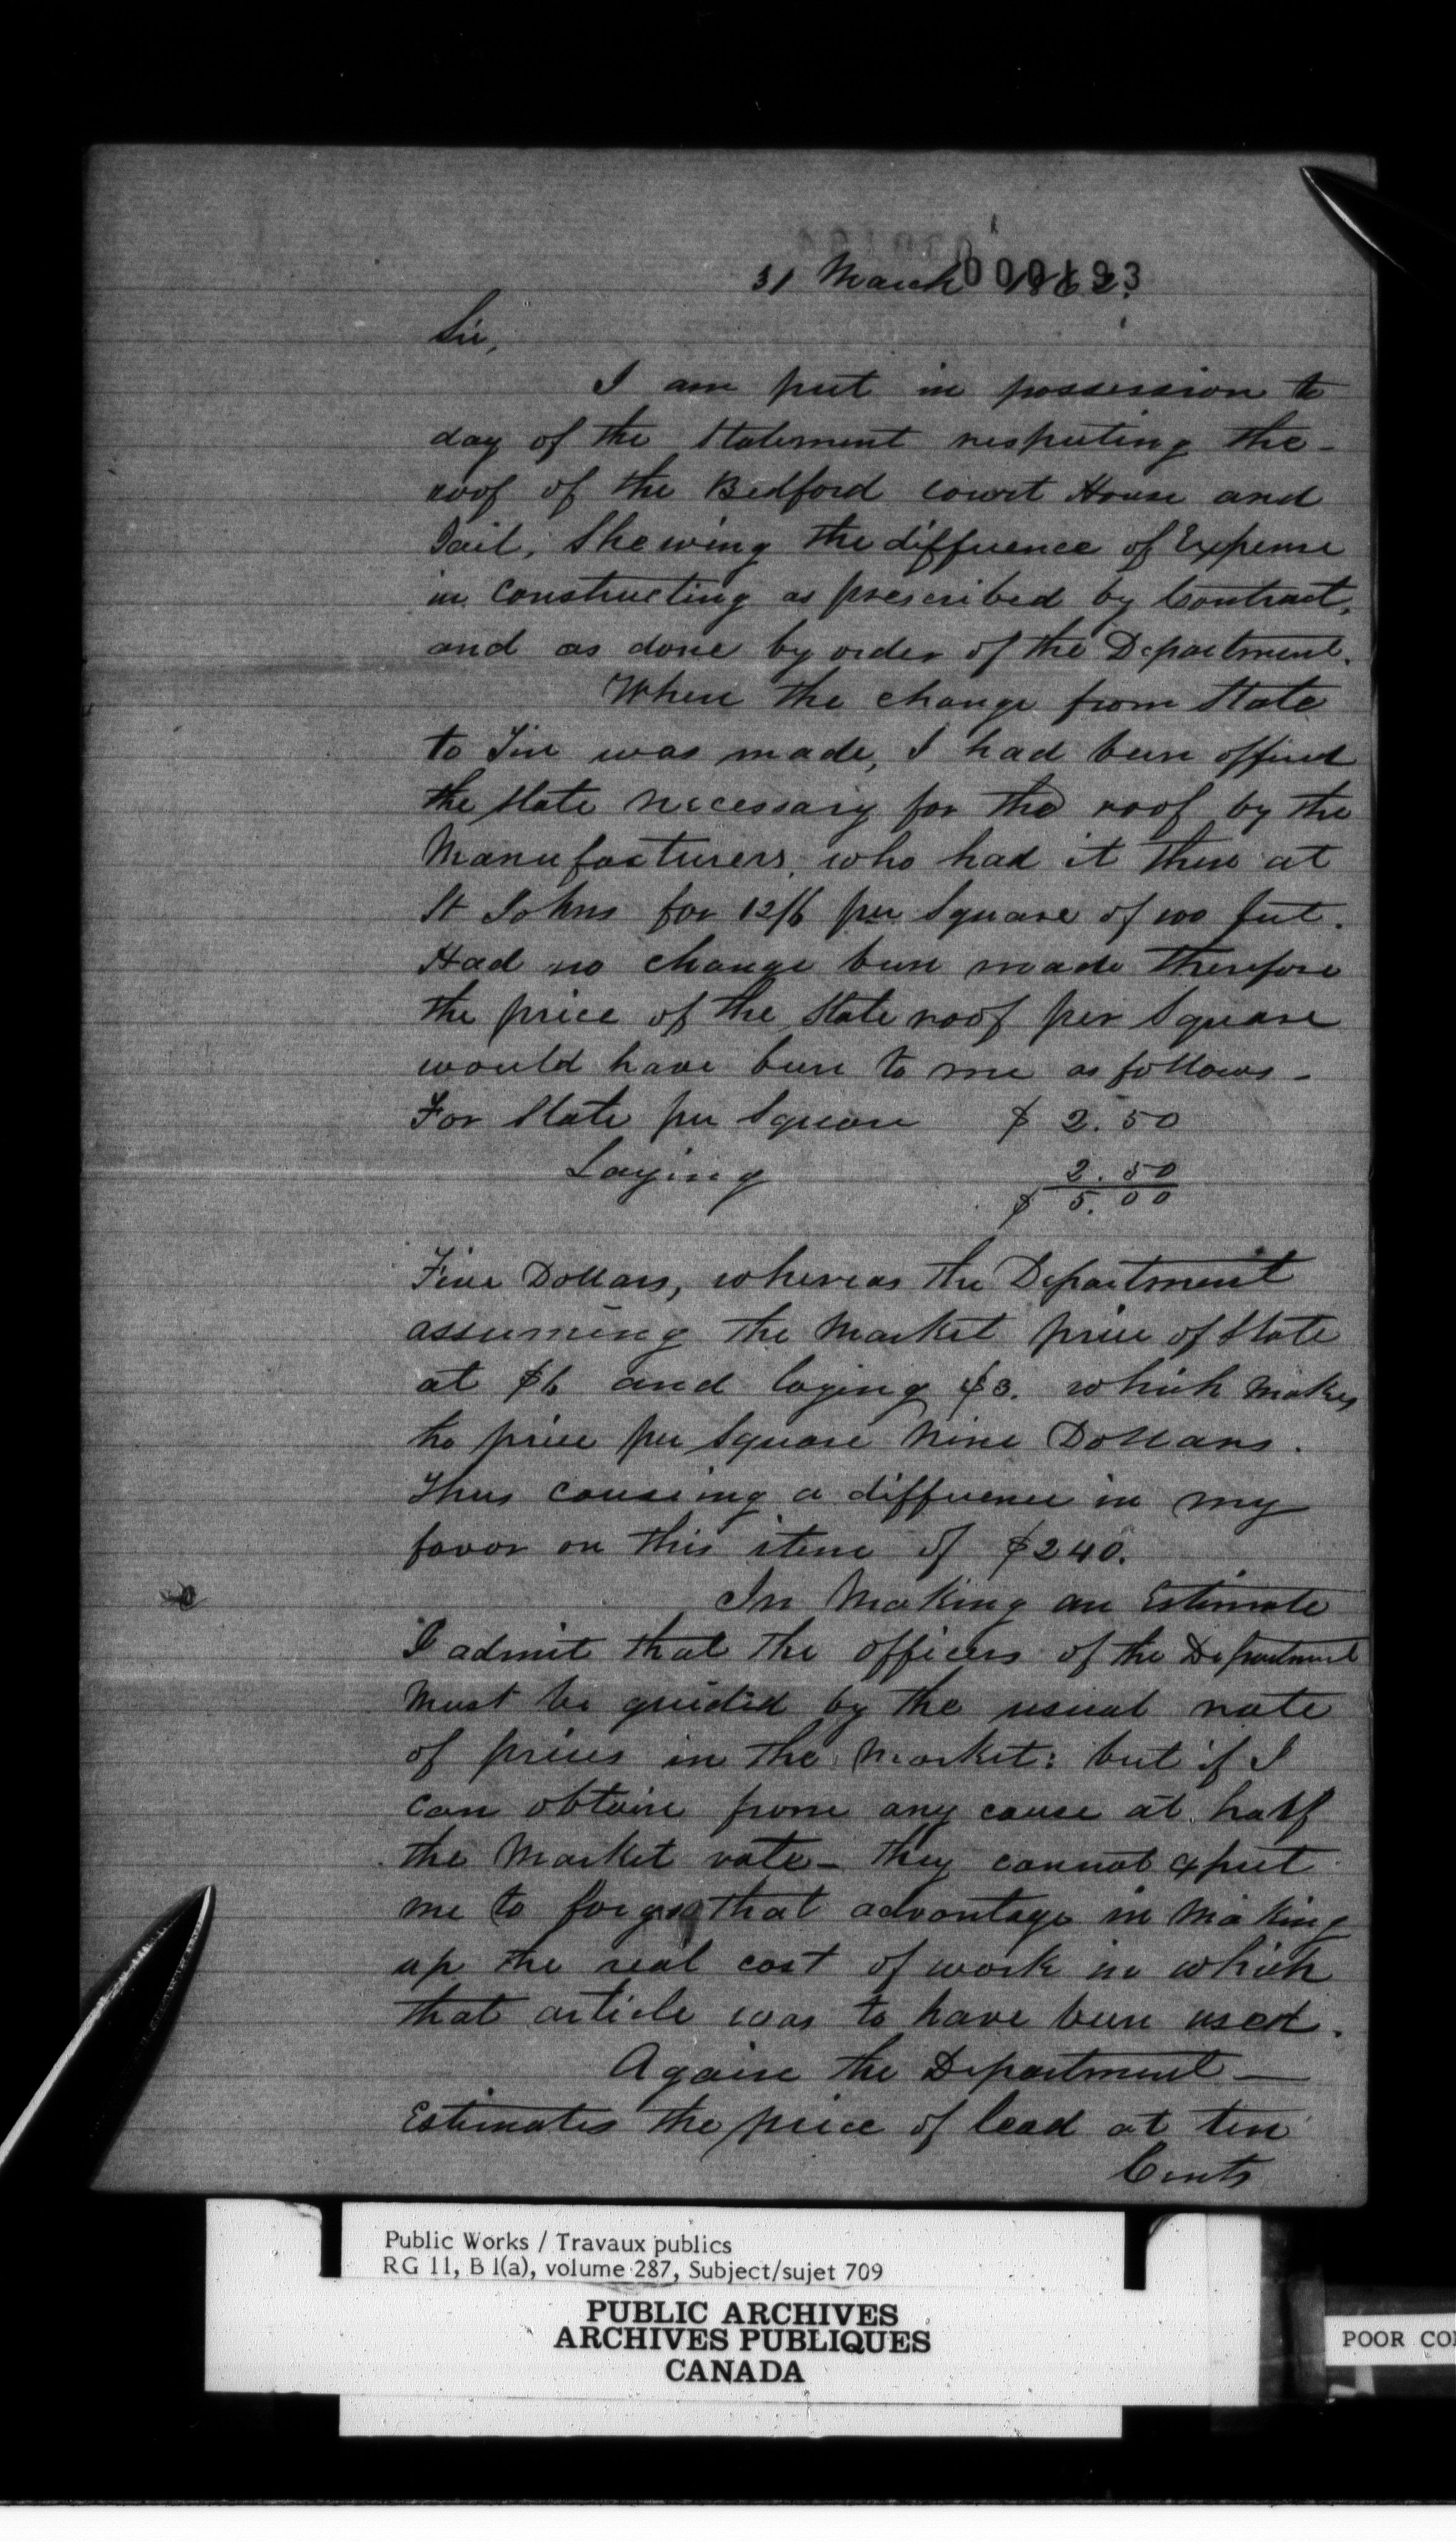 000193
31 March 1862.
Sir,
I am put in possession to
day of the Statement respecting the -
roof of the Bedford court House and
Jail, Shewing the difference of Expense
in constructing as prescribed by Contract,
and as done by order of the Department.
When the change from Slate
to Tin was made, I had been offered
the slate necessary for the roof by the
Manufacturers, who had it then at
St Johns for 12/6 per Square of 100 feet.
Had no change been made therefore
the price of the Slate roof per Square
would have been to me as follows -
For Slate per Square $ 2.50
Laying 2.50
$ 5.00
Five Dollars, whereas the Department
assuming the Market price of Slate
at $6 and laying $3. which makes
the price per Square Nine Dollars.
Thus causeing a difference in my
favor on this item of $240.
In Making an Estimate
I admit that the officers of the Department
Must be guided by the usual rate
of prices in the Market: but if I
can obtain from any cause at half
the Market rate - they cannot expect
me to forgo that advantage in Making
up the real cost of work in which
that article was to have been used.
Again the Department -
Estimates the price of lead at ten
Cents
Public Works / Travaux publics
RG 11, B 1(a), volume 287, Subject/sujet 709
PUBLIC ARCHIVES
ARCHIVES PUBLIQUES
CANADA
POOR CO